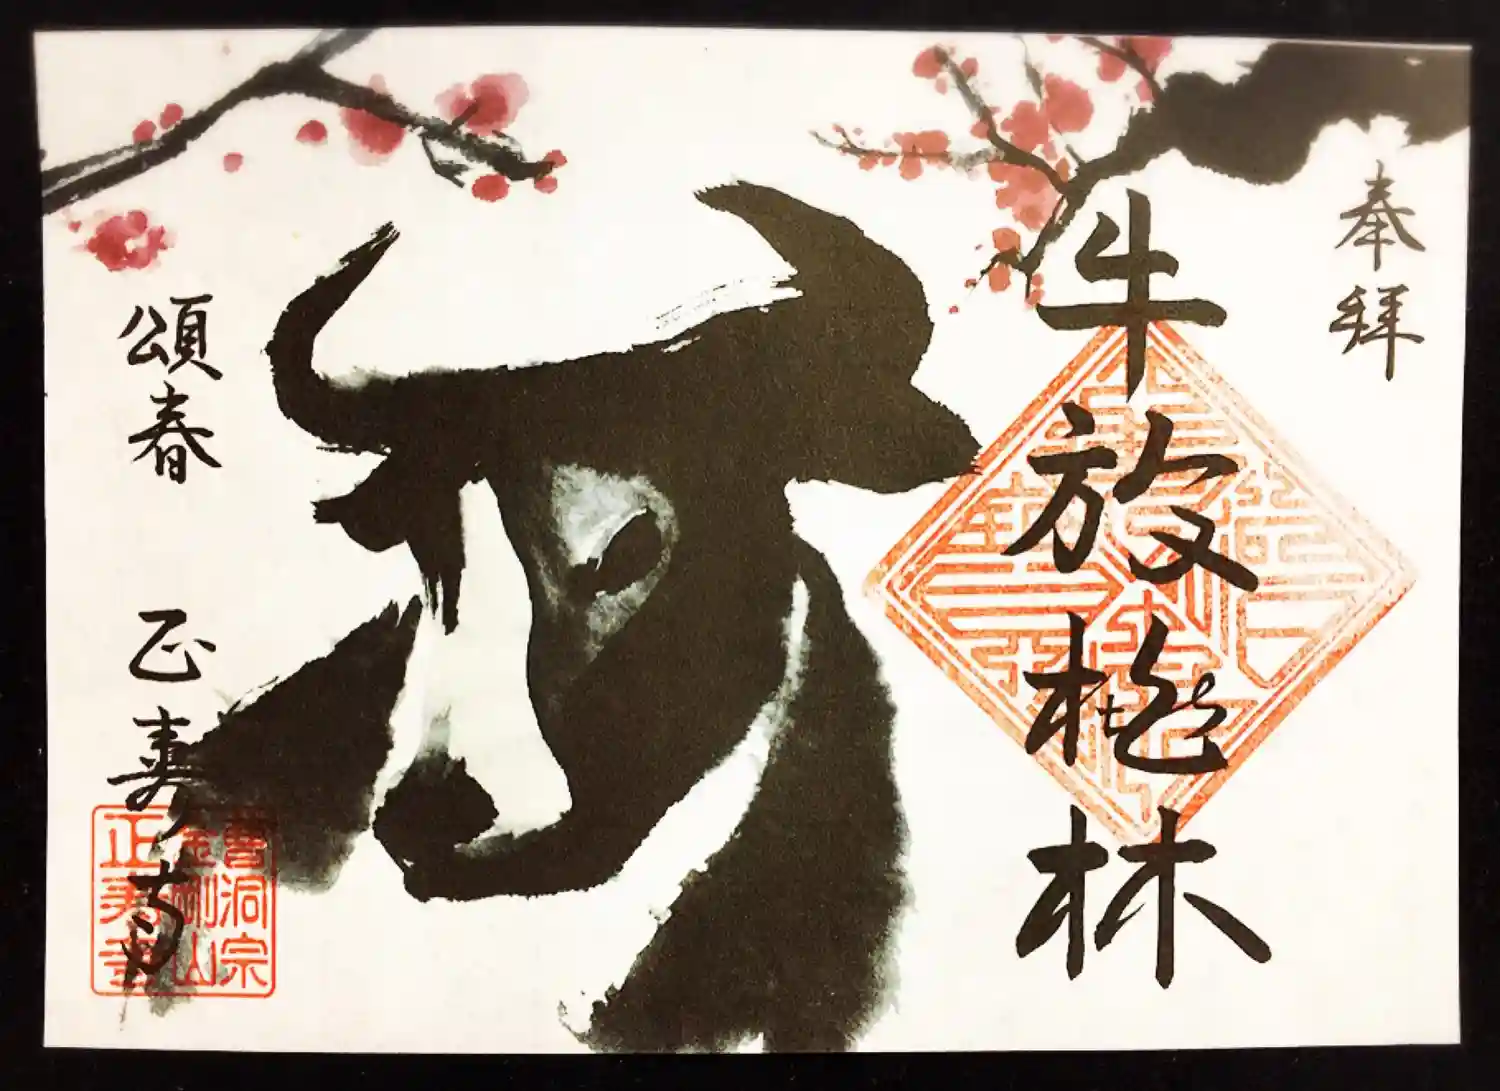 奉拝
牛放桃林
頌春 正壽寺
曹洞宗
金剛山
正寿寺